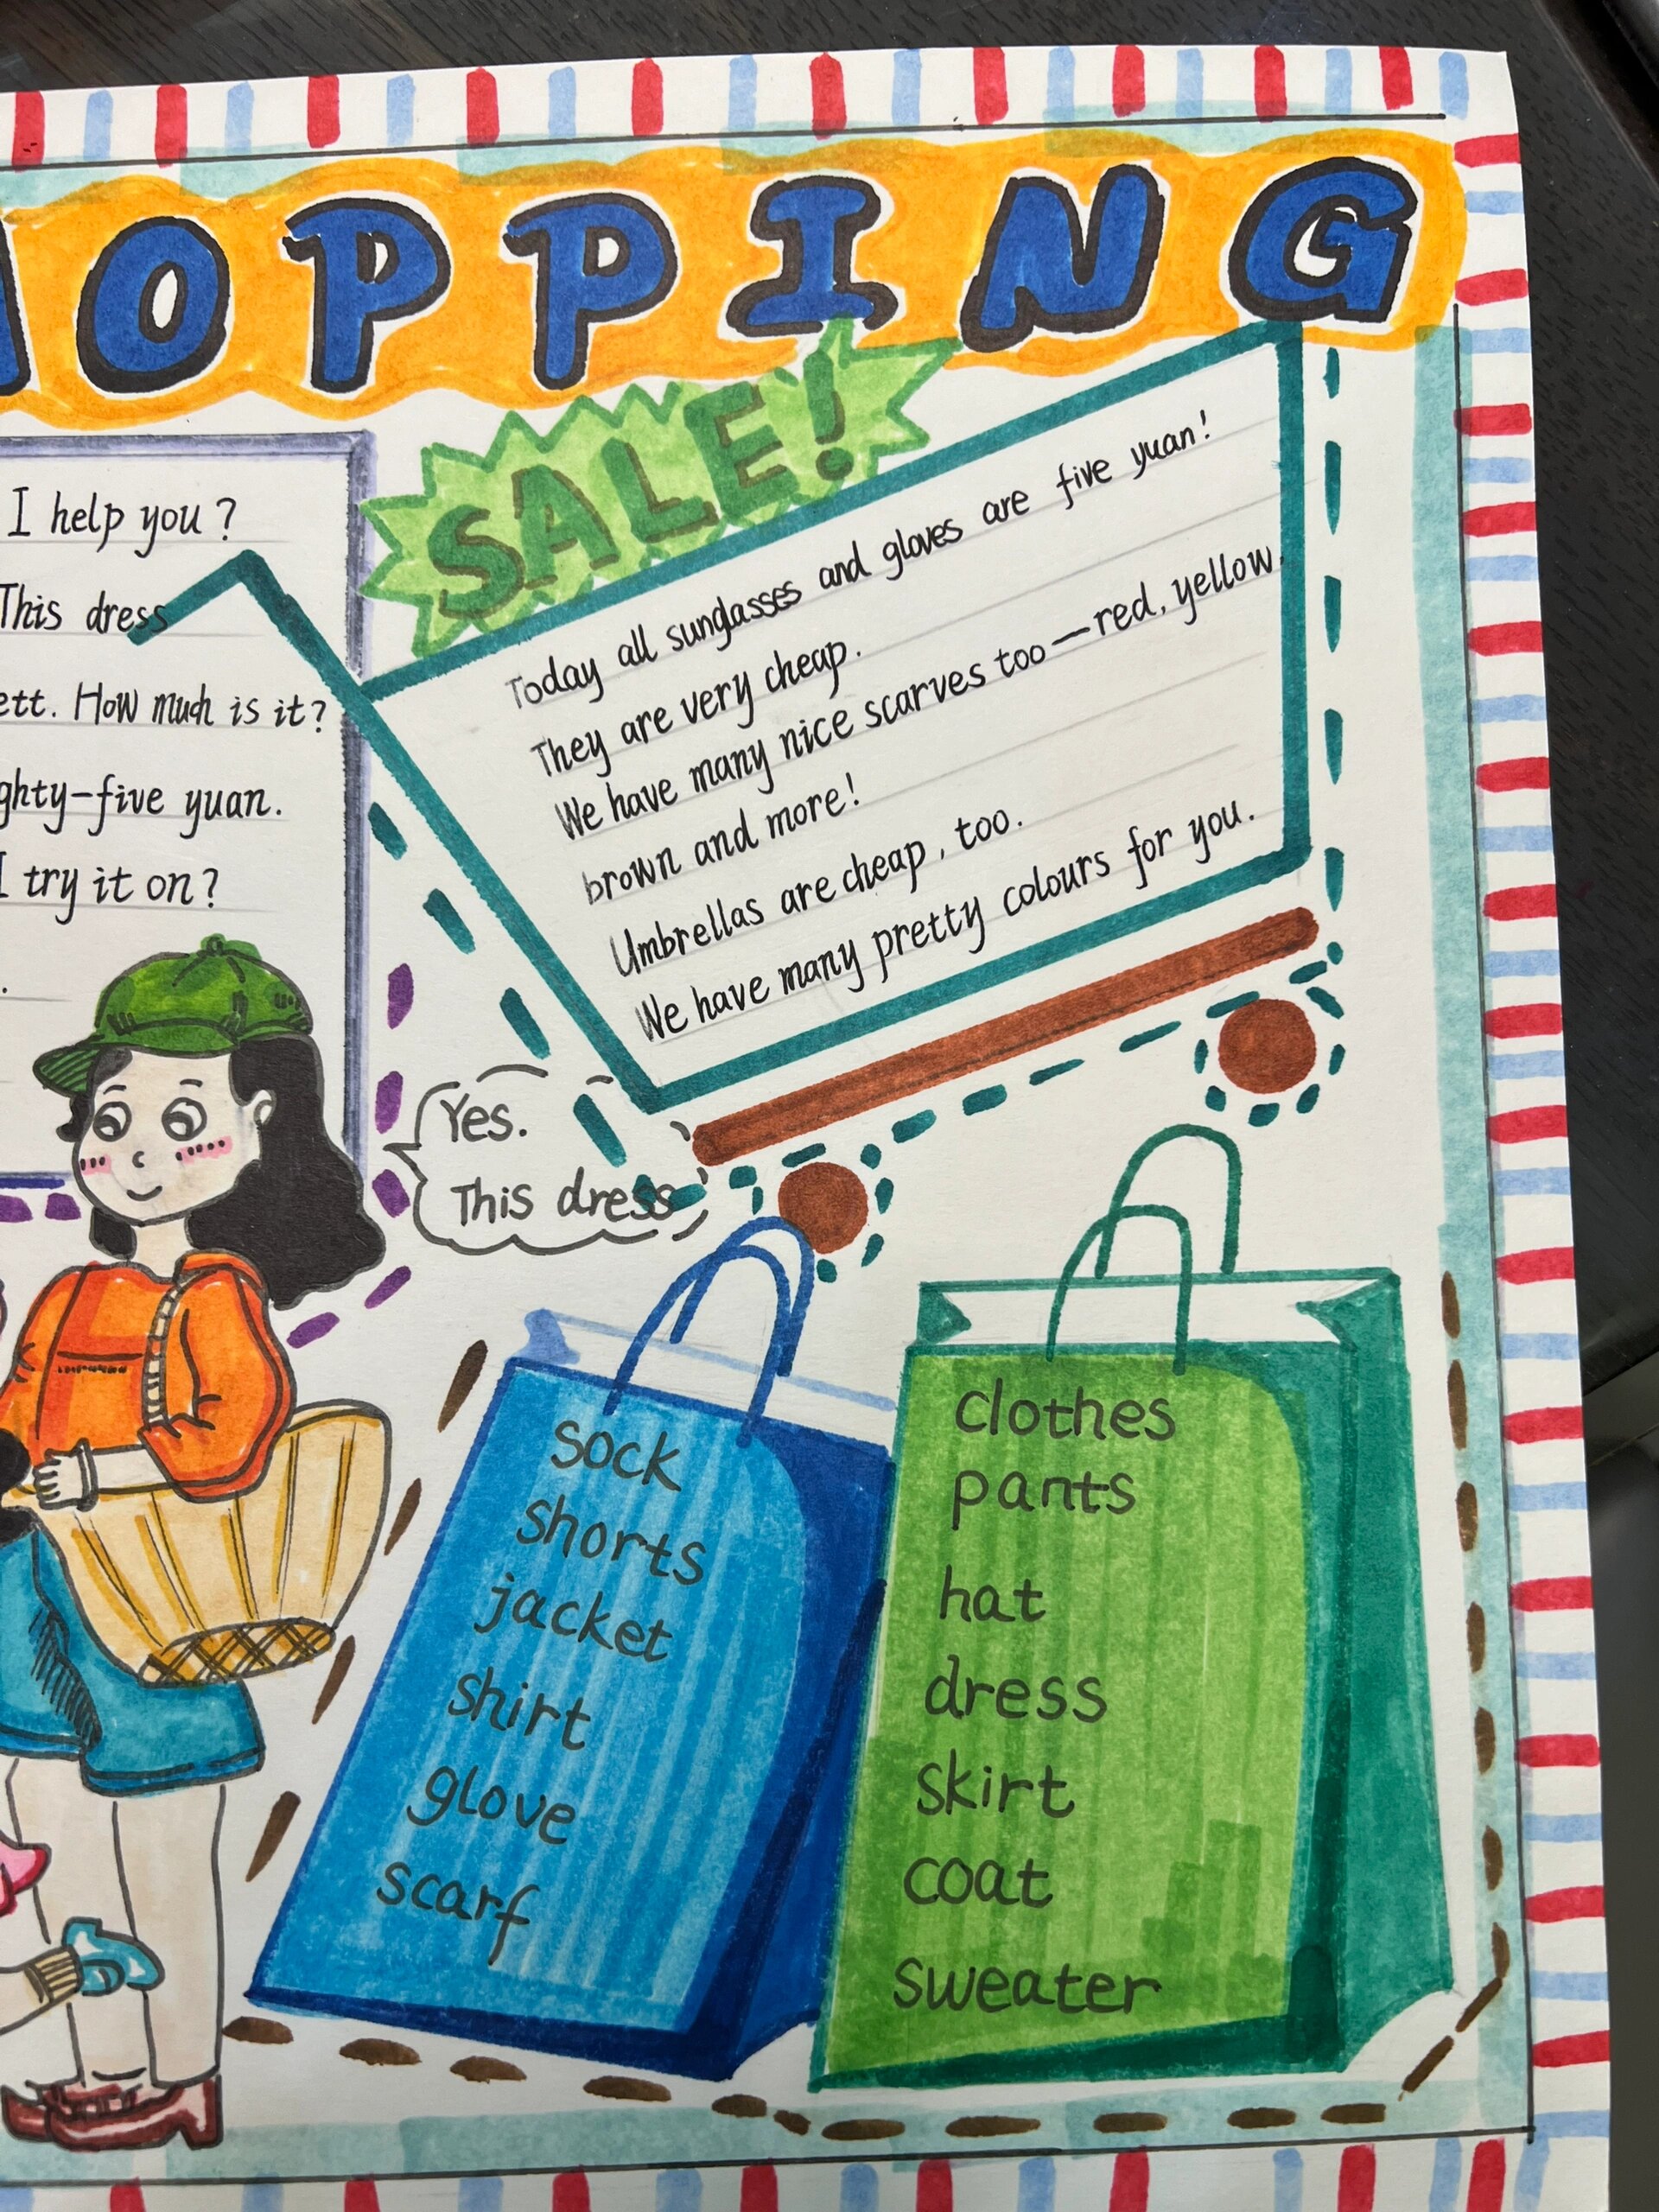 OPPING
I help you?
This dress
ett. How much is it?
ghty-five yuan.
I try it on?
SALE!
Today all sunglasses and gloves are five yuan!
They are very cheap.
We have many nice scarves too—red, yellow.
brown and more!
Umbrellas are cheap, too.
We have many pretty colours for you.
Yes.
This dress
sock
shorts
jacket
shirt
glove
scarf
clothes
pants
hat
dress
skirt
coat
sweater